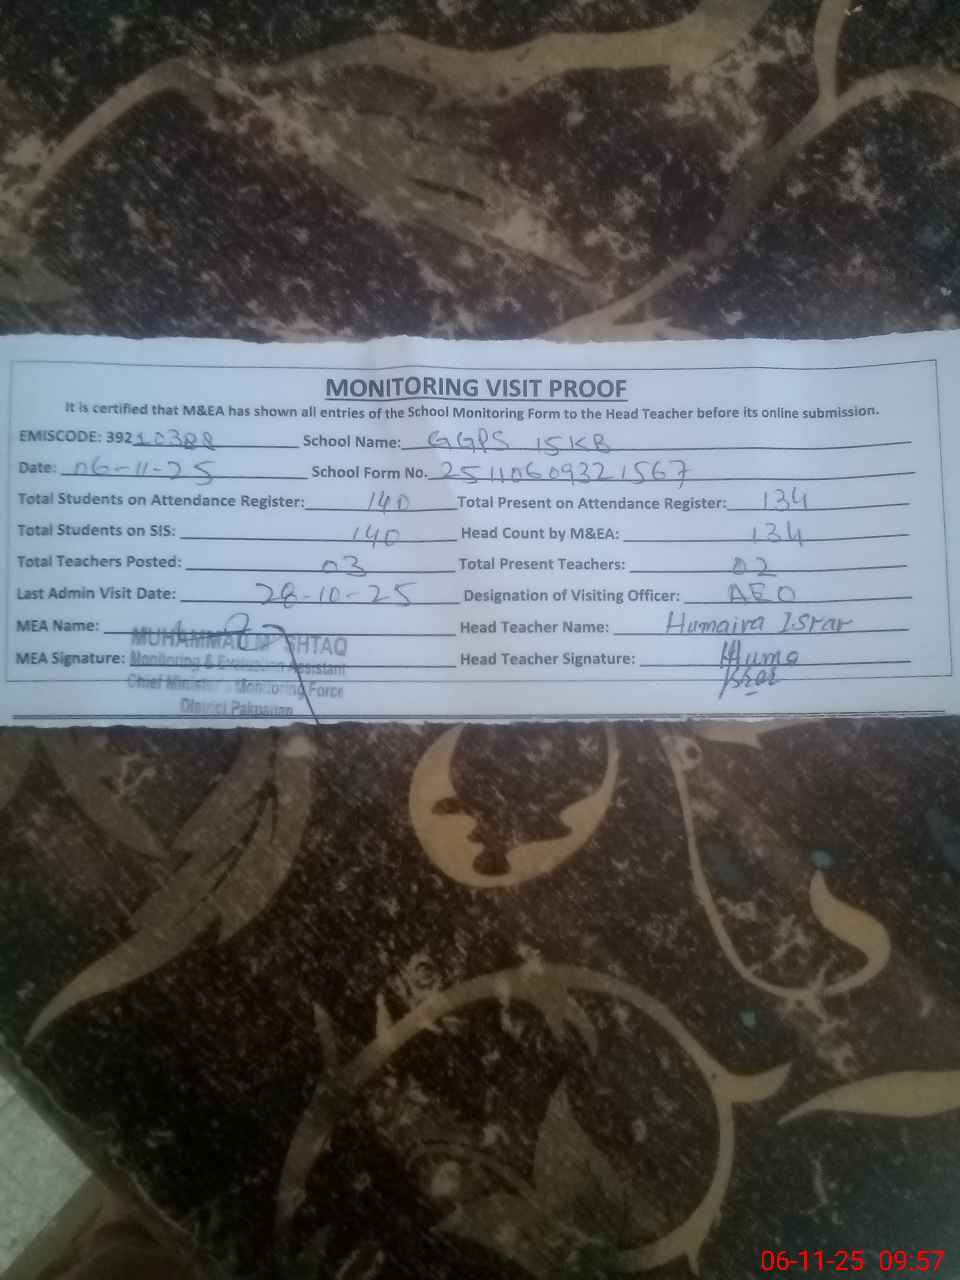 MONITORING VISIT PROOF
It is certified that M&EA has shown all entries of the School Monitoring Form to the Head Teacher before its online submission.
EMISCODE: 39210388 School Name: GGPS 15KB
Date: 06-11-25 School Form No. 25110609321567
Total Students on Attendance Register: 140 Total Present on Attendance Register: 134
Total Students on SIS: 140 Head Count by M&EA: 134
Total Teachers Posted: 03 Total Present Teachers: 02
Last Admin Visit Date: 28-10-25 Designation of Visiting Officer: AEO
MEA Name: MUHAMMAD MUSHTAQ Head Teacher Name: Humaira Israr
MEA Signature: Monitoring & Evaluation Assistant Head Teacher Signature: Huma
Israr
Chief Minister's Monitoring Force
District Pakpattan
06-11-25 09:57